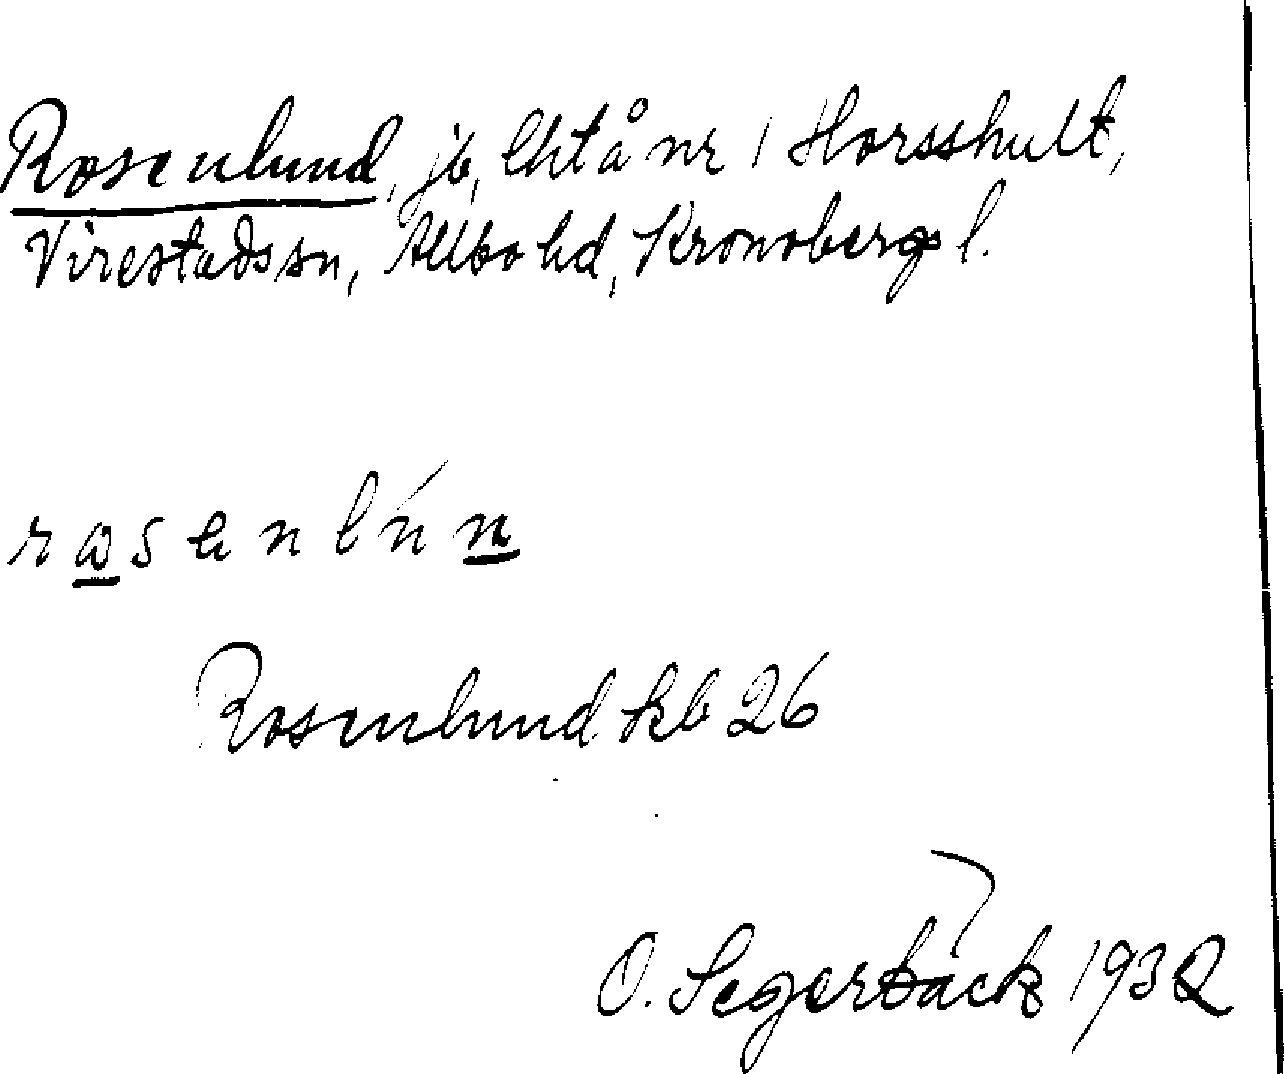 Rosenlund, jb, lht å nr 1 Horsshult,
Virestads sn, Allbo hd, Kronobergs l.
rosenlún
Rosenlund kb 26
O. Segerbäck 1932